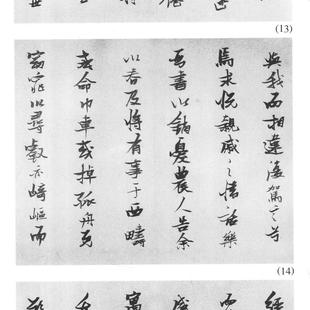 (13)
與我而相違復駕言兮
焉求悦親戚之情話樂
琴書以銷憂農人告余
以春及將有事于西疇
或命巾車或棹孤舟既
窈窕以尋壑亦崎嶇而
(14)